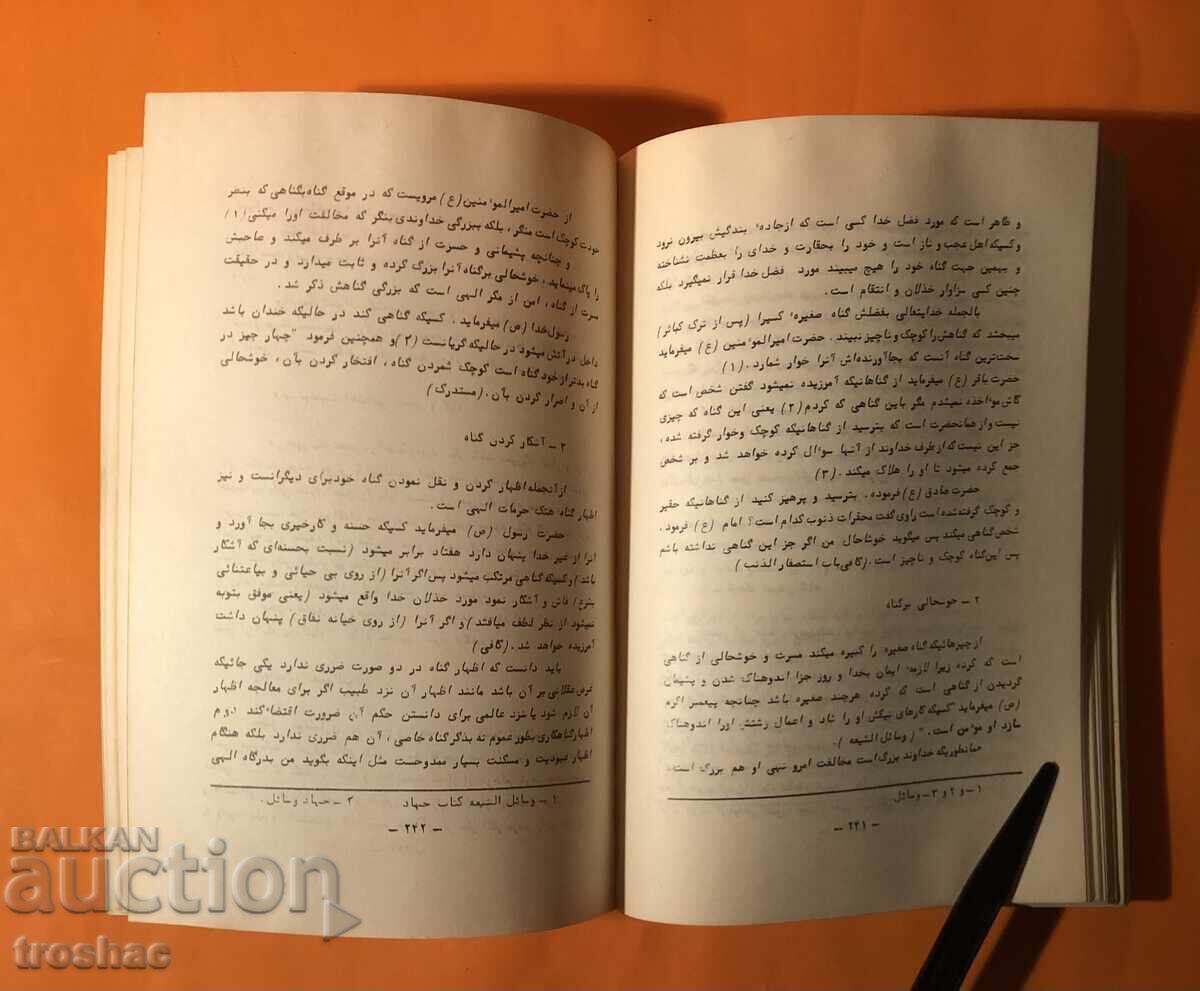 و ظاهر است که مورد فضل خدا کسی است که ازجاده٬ بندگیش بیرون نرود
و کسیکه اهل عجب و ناز است و خود را بحقارت و خدای را بعظمت نشناخته
و بهمین جهت گناه خود را هیچ میبیند مورد فضل خدا قرار نمیگیرد بلکه
چنین کسی سزاوار خذلان و انتقام است.
بالجمله خدایتعالی بفضلش گناه صغیره٬ کسیرا (پس از ترک کبائر)
میبخشد که گناهش را کوچک و ناچیز نبیند. حضرت امیرالمو٬منین (ع) میفرماید
سخت‌ترین گناه آنست که بجاآورنده‌اش آنرا خوار شمارد. (۱)
حضرت باقر (ع) میفرماید از گناهانیکه آمرزیده نمیشود گفتن شخص است که
کاش مو٬اخذه نمیشدم مگر باین گناهی که کردم (۲) یعنی این گناه که چیزی
نیست و از همانحضرت است که بترسید از گناهانیکه کوچک وخوار گرفته شده،
جز این نیست که ازطرف خداوند از آنها سو٬ال کرده خواهد شد و بر شخص
جمع کرده میشود تا او را هلاک میکند. (۳)
حضرت صادق (ع) فرموده. بترسید و پرهیز کنید از گناهانیکه حقیر
و کوچک گرفته‌شده است راوی گفت محقرات ذنوب کدام است؟ امام (ع) فرمود.
شخص گناهی میکند پس میگوید خوشاحال من اگر جز این گناهی نداشته باشم
پس این‌گناه کوچک و ناچیز است. (کافی باب استصغار الذنب)
۲ – خوشحالی برگناه
از چیزهائیکه گناه صغیره را کبیره میکند مسرت و خوشحالی از گناهی
است که کرده زیرا لازمه٬ ایمان بخدا و روز جزا اندوهناک شدن و پشیمان
گردیدن از گناهی است که کرده هرچند صغیره باشد چنانچه پیغمبر اکرم
(ص) میفرماید "کسیکه کارهای نیکش او را شاد و اعمال زشتش اورا اندوهناک
سازد او مو٬من است." (وسائل الشیعه).
همانطوریکه خداوند بزرگ است مخالفت امرو نهی او هم بزرگ است.
۱ – و ۲ و ۳ – وسائل.
– ۲۴۱ –
از حضرت امیرالمو٬منین (ع) مرویست که در موقع گناه بگناهی که بنظر
خودت کوچک است منگر، بلکه ببزرگی خداوندی بنگر که مخالفت اورا میکنی (۱)
و چنانچه پشیمانی و حسرت از گناه آنرا بر طرف میکند و صاحبش
را پاک مینماید، خوشحالی برگناه آنرا بزرگ کرده و ثابت میدارد و در حقیقت
مسرت از گناه، امن از مکر الهی است که بزرگی گناهش ذکر شد.
رسول خدا (ص) میفرماید. کسیکه گناهی کند در حالیکه خندان باشد
داخل درآتش میشود در حالیکه گریانست (۲) و همچنین فرمود "چهار چیز در
گناه بدتر از خود گناه است کوچک شمردن گناه، افتخار کردن بآن، خوشحالی
از آن و اصرار کردن بآن. (مستدرک)
۳ – آشکار کردن گناه
ازآنجمله اظهار کردن و نقل نمودن گناه خود برای دیگرانست و نیز
اظهار گناه هتک حرمات الهی است.
حضرت رسول (ص) میفرماید کسیکه حسنه و کارخیری بجا آورد و
آنرا از غیر خدا پنهان دارد هفتاد برابر میشود (نسبت بحسنه‌ای که آشکار
باشد) و کسیکه گناهی مرتکب میشود پس اگر آنرا (از روی بی حیائی و بی‌اعتنائی
بشرع) فاش و آشکار نمود مورد خذلان خدا واقع میشود (یعنی موفق بتوبه
نمیشود از نظر لطف میافتد) و اگر آنرا (از روی حیانه نفاق) پنهان داشت
آمرزیده خواهد شد. (کافی)
باید دانست که اظهار گناه در دو صورت ضرری ندارد یکی جائیکه
غرض عقلائی بر آن باشد مانند اظهار آن نزد طبیب اگر برای معالجه اظهار
آن لازم شود یا نزد عالمی برای دانستن حکم آن ضرورت اقتضا٬ کند دوم
اظهار گناهکاری بطور عموم نه بذکر گناه خاصی، آن هم ضرری ندارد بلکه هنگام
اظهار عبودیت و مسکنت بسیار ممدوحست مثل اینکه بگوید من بدرگاه الهی
۱ – وسائل الشیعه کتاب جهاد ۲ – جهاد وسائل.
– ۲۴۲ –
BALKAN
auction
troshac